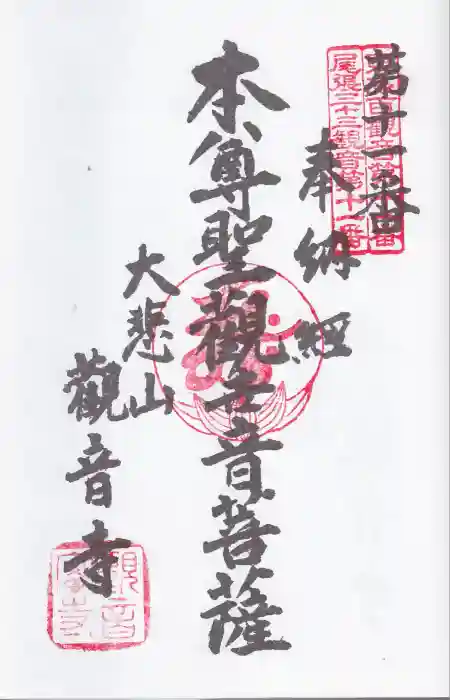 第十一番
尾張三十三観音第十一番
奉納経
本尊聖觀世音菩薩
大悲山
觀音寺
觀音寺